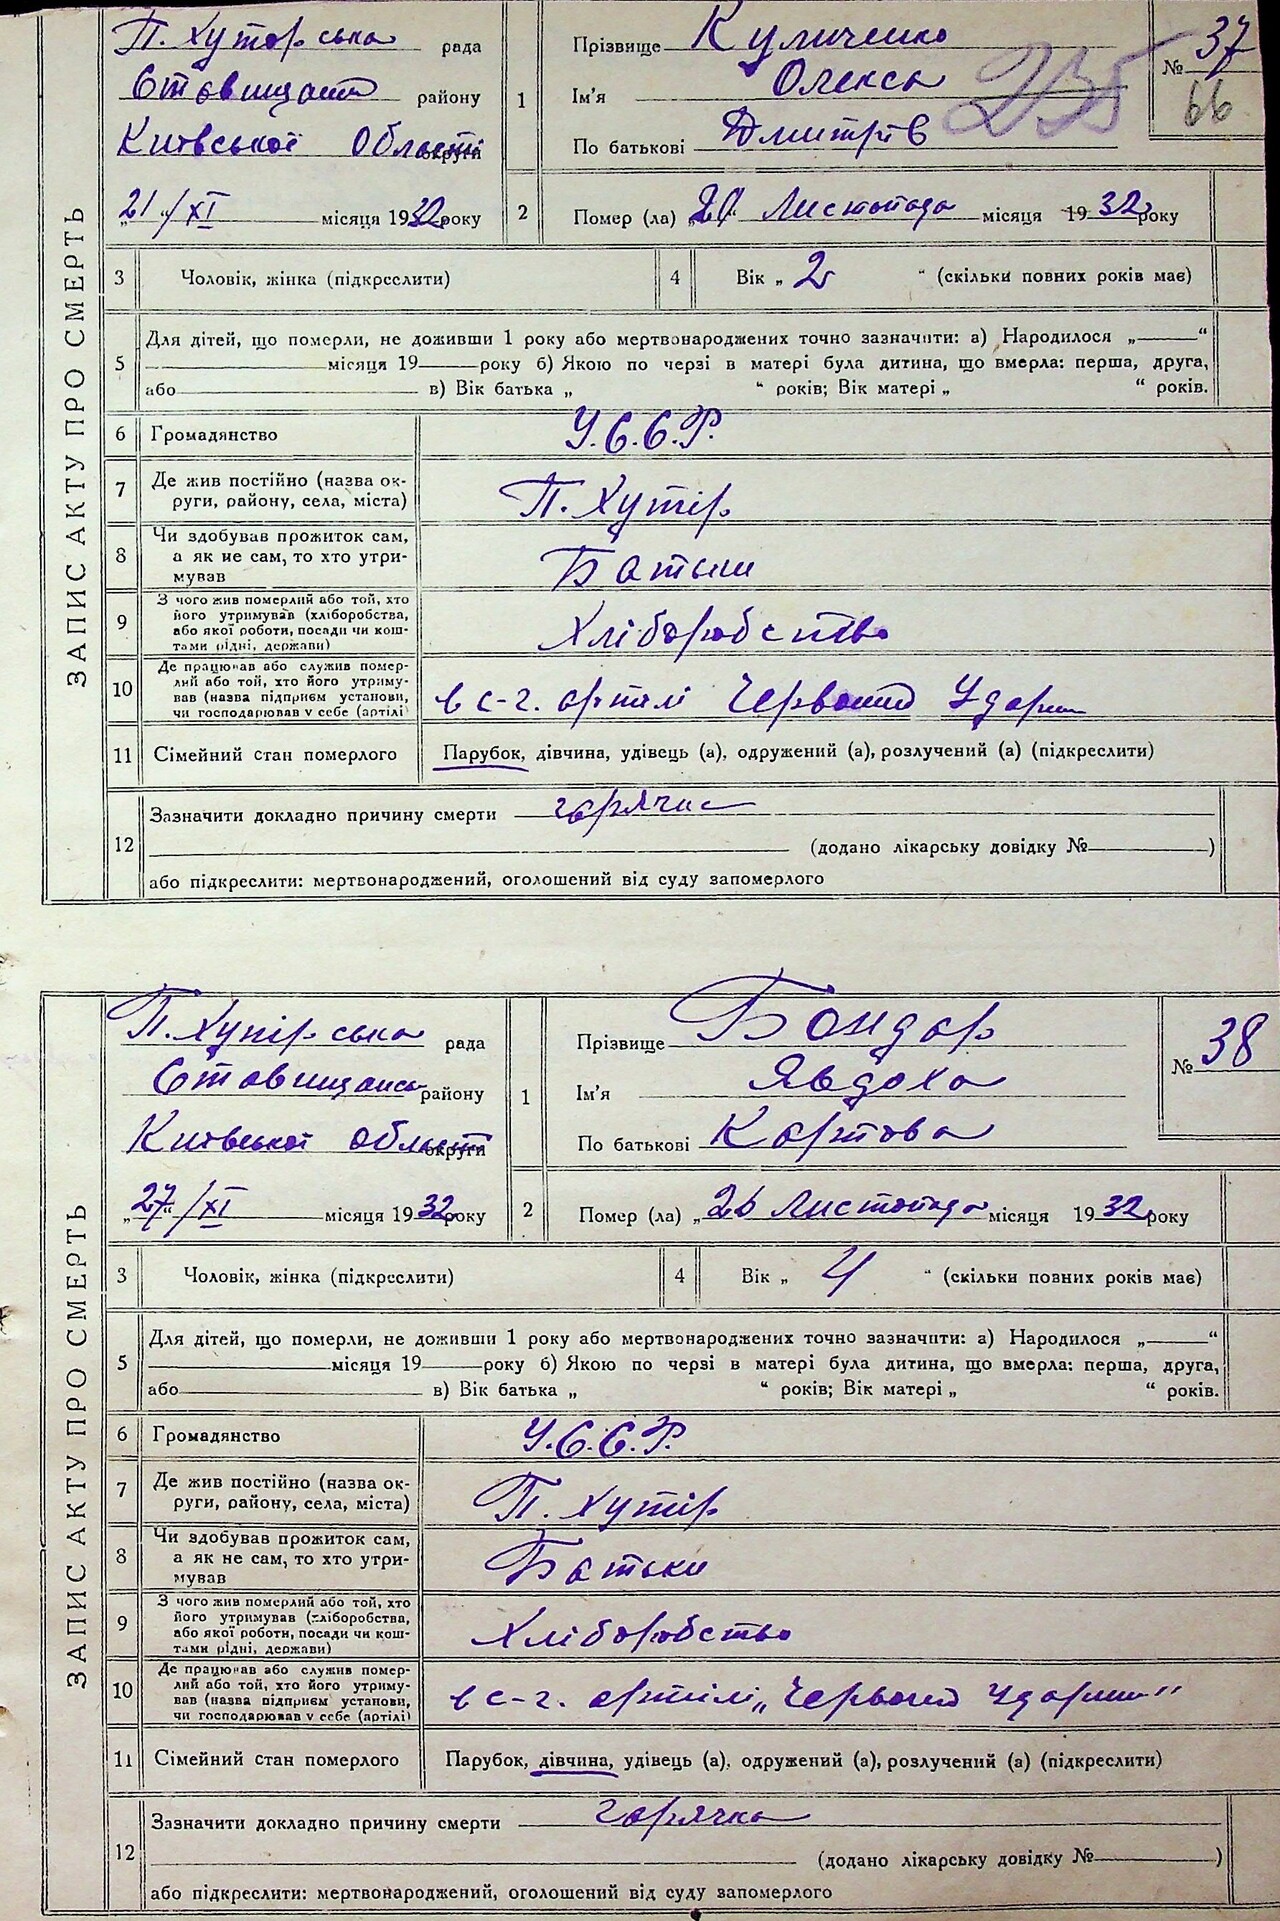 ЗАПИС АКТУ ПРО СМЕРТЬ
П. Хуторська рада
Ставищанс району
Київської Області округи
„21“/XI місяця 1932 року
1
Прізвище Куличенко
Ім'я Олекса
По батькові Дмитрів
235
№ 37
66
2
Помер (ла) „ “ Листопада місяця 1932 року
3 Чоловік, жінка (підкреслити)
4 Вік „ 2 “ (скільки повних років має)
5
Для дітей, що померли, не доживши 1 року або мертвонароджених точно зазначити: а) Народилося „ “
місяця 19 року б) Якою по черзі в матері була дитина, що вмерла: перша, друга,
або в) Вік батька „ “ років; Вік матері „ “ років.
6 Громадянство У.С.С.Р.
7 Де жив постійно (назва ок-
руги, району, села, міста) П. Хутір
8 Чи здобував прожиток сам,
а як не сам, то хто утри-
мував Батьки
9 З чого жив померлий або той, хто
його утримував (хліборобства,
або якої роботи, посади чи кош-
тами рідні, держави) Хліборобство
10 Де працював або служив помер-
лий або той, хто його утриму-
вав (назва підприєм установи,
чи господарював у себе (артілі) в с-г. артілі Червоний Ударник
11 Сімейний стан померлого Парубок, дівчина, удівець (а), одружений (а), розлучений (а) (підкреслити)
12 Зазначити докладно причину смерти горячка
(додано лікарську довідку № )
або підкреслити: мертвонароджений, оголошений від суду запомерлого
ЗАПИС АКТУ ПРО СМЕРТЬ
П. Хутірська рада
Ставищанськ району
Київської області округи
„27“/XI місяця 1932 року
1
Прізвище Бондар
Ім'я Явдоха
По батькові Картова
№ 38
2
Помер (ла) „26 Листопада місяця 1932 року
3 Чоловік, жінка (підкреслити)
4 Вік „ 4 “ (скільки повних років має)
5
Для дітей, що померли, не доживши 1 року або мертвонароджених точно зазначити: а) Народилося „ “
місяця 19 року б) Якою по черзі в матері була дитина, що вмерла: перша, друга,
або в) Вік батька „ “ років; Вік матері „ “ років.
6 Громадянство У.С.С.Р.
7 Де жив постійно (назва ок-
руги, району, села, міста) П. Хутір
8 Чи здобував прожиток сам,
а як не сам, то хто утри-
мував Батьки
9 З чого жив померлий або той, хто
його утримував (хліборобства,
або якої роботи, посади чи кош-
тами рідні, держави) Хліборобство
10 Де працював або служив помер-
лий або той, хто його утриму-
вав (назва підприєм установи,
чи господарював у себе (артілі) в с-г. артілі „Червоний Ударник"
11 Сімейний стан померлого Парубок, дівчина, удівець (а), одружений (а), розлучений (а) (підкреслити)
12 Зазначити докладно причину смерти горячка
(додано лікарську довідку № )
або підкреслити: мертвонароджений, оголошений від суду запомерлого